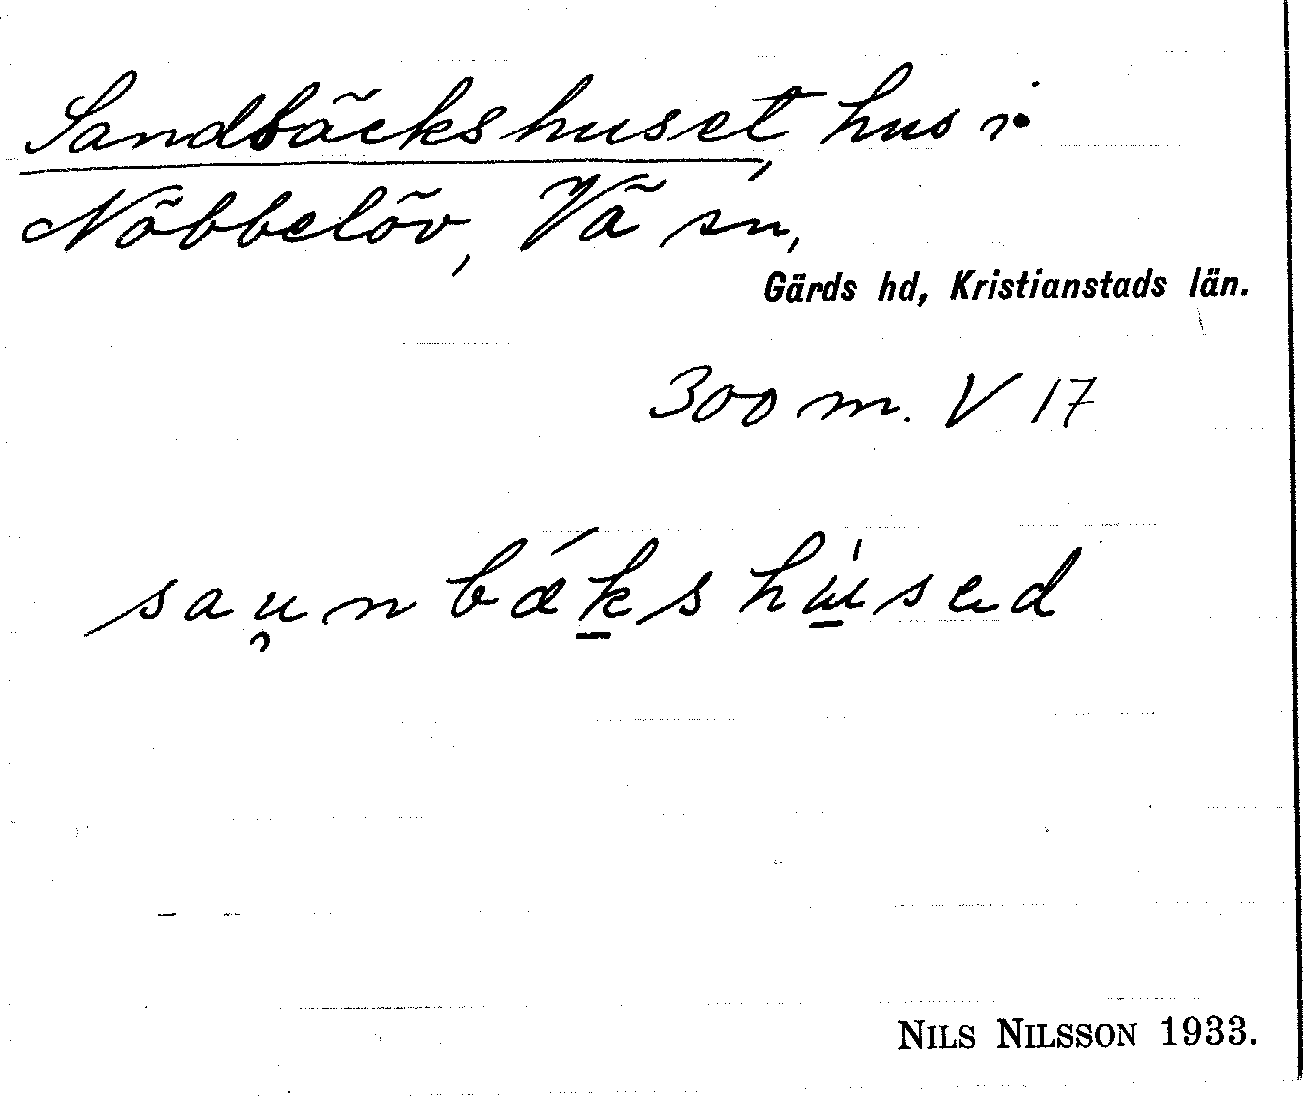 Sandbäckshuset, hus i
Nöbbelöv, Vä sn,
Gärds hd, Kristianstads län.
300 m. V 17
sau̯nbǽk̲s hu̲̍sed
NILS NILSSON 1933.